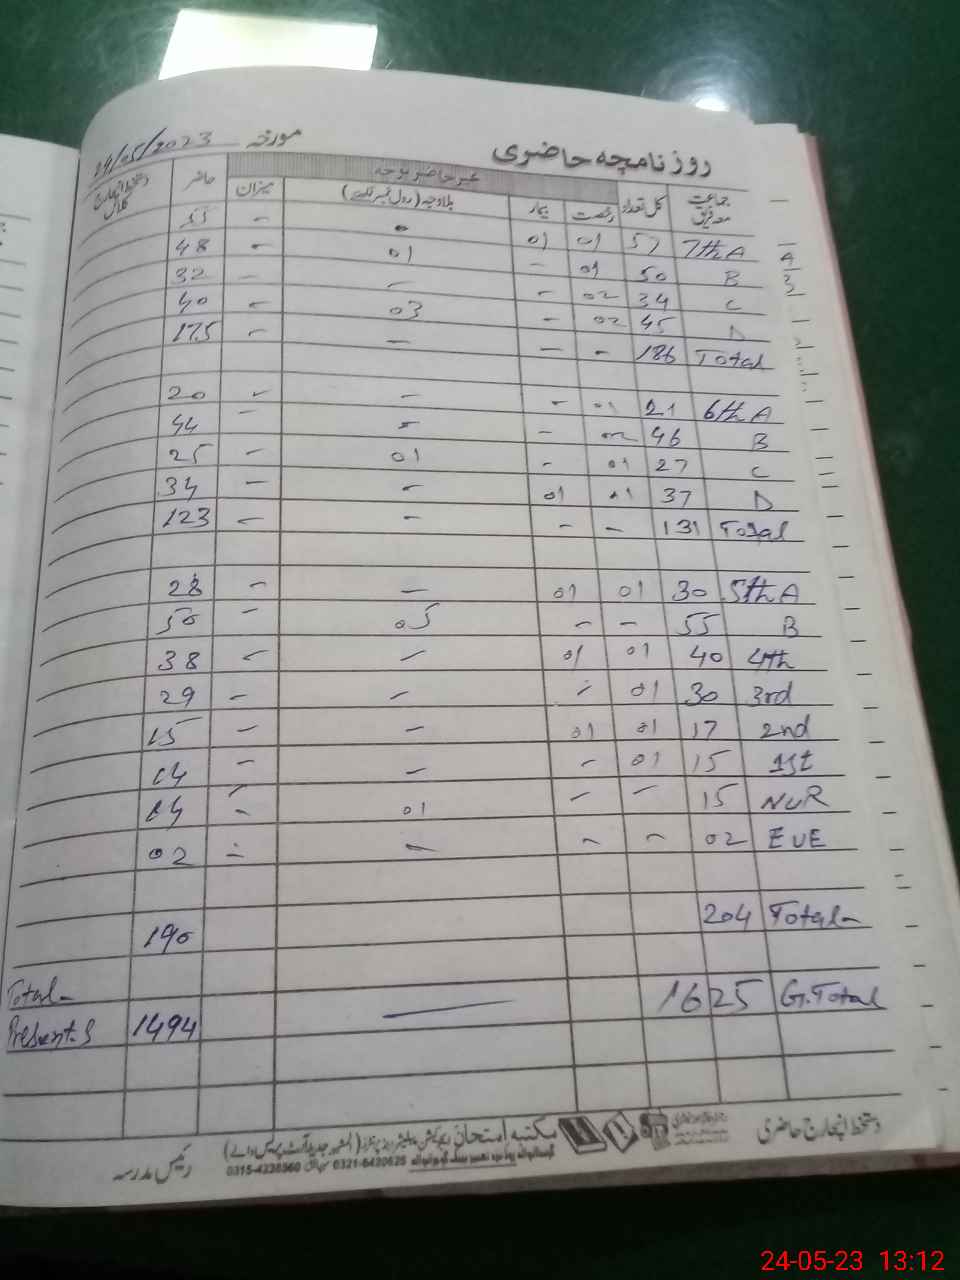 روزنامچہ حاضری مورخہ 24/05/2023
جماعت معہ فریق کل تعداد غیر حاضر بوجہ حاضر دستخط انچارج کلاس
رخصت بیمار بلاوجہ (رول نمبر لکھیے) میزان
7th A 57 01 01 0 - 55
B 50 01 - 01 - 48
C 34 02 - - - 32
D 45 02 - 03 - 40
Total 186 - - - - 175
6th A 21 01 - - - 20
B 46 02 - - - 44
C 27 01 - 01 - 25
D 37 01 01 - - 34
Total 131 - - - - 123
5th A 30 01 01 - - 28
B 55 - - 05 - 50
4th 40 01 01 - - 38
3rd 30 01 - - - 29
2nd 17 01 01 - - 15
1st 15 01 - - - 14
NUR 15 - - 01 - 14
EUE 02 - - - - 02
Total 204 190
G.Total 1625 — 1494 Total Present.S
دستخط انچارج حاضری
مکتبہ امتحان
رئیس مدرسہ
0321-6420625
0315-4338560
24-05-23 13:12